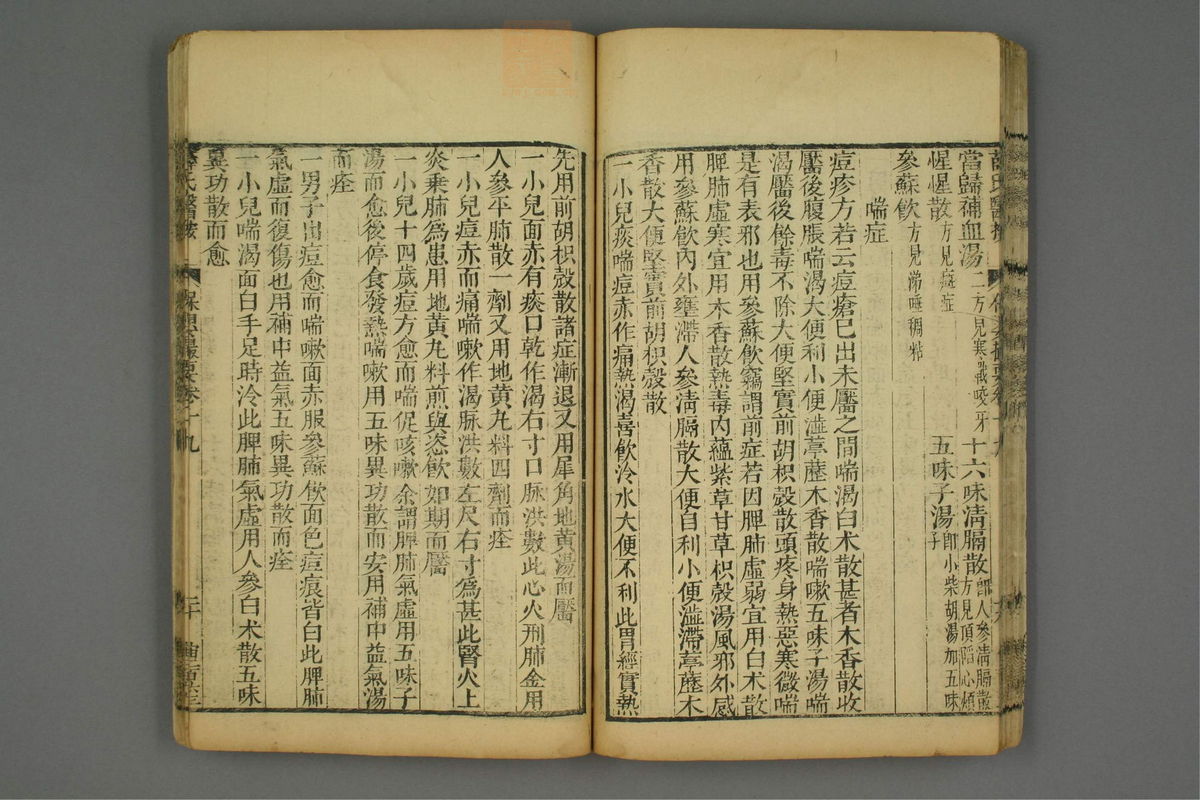 當歸補血湯二方見寒戰咬牙 十六味清膈散即人參清膈散方見頂陷心煩
惺惺散方見癍症 五味子湯即小柴胡湯加五味子
參蘇飲方見嚏唾稠粘
喘症
痘疹方若云痘瘡已出未靨之間喘渴白朮散甚者木香散收
靨後腹脹喘渴大便利小便澁葶藶木香散喘嗽五味子湯喘
渴靨後餘毒不除大便堅實前胡枳殼散頭疼身熱惡寒微喘
是有表邪也用參蘇飲竊謂前症若因脾肺虛弱宜用白朮散
脾肺虛寒宜用木香散熱毒內蘊紫草甘草枳殼湯風邪外感
用參蘇飲內外壅滯人參清膈散大便自利小便澁滯葶藶木
香散大便堅實前胡枳殼散
一小兒痰喘痘赤作痛熱渴喜飲冷水大便不利此胃經實熱
先用前胡枳殼散諸症漸退又用犀角地黃湯而靨
一小兒面赤有痰口乾作渴右寸口脉洪數此心火刑肺金用
人參平肺散一劑又用地黃丸料四劑而痊
一小兒痘赤而痛喘嗽作渴脉洪數左尺右寸爲甚此腎火上
炎乘肺爲患用地黃丸料煎與恣飲如期而靨
一小兒十四歲痘方愈而喘促咳嗽余謂脾肺氣虛用五味子
湯而愈後停食發熱喘嗽用五味異功散而安用補中益氣湯
而痊
一男子出痘愈而喘嗽面赤服參蘇飲面色痘痕皆白此脾肺
氣虛而復傷也用補中益氣五味異功散而痊
一小兒喘渴面白手足時冷此脾肺氣虛用人參白朮散五味
異功散而愈
薛氏醫按 保嬰撮要卷十九 二十